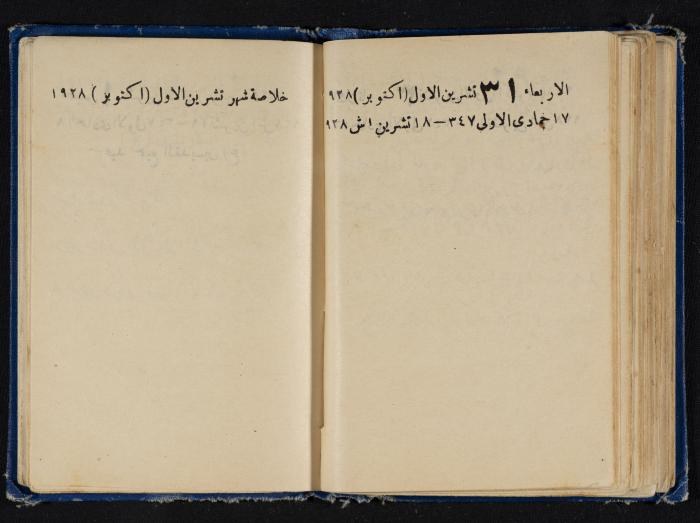 الاربعاء ٣١ تشرين الاول (اكتوبر) ٩٢٨
١٧ جمادى الاولى ٣٤٧ – ١٨ تشرين ١ ش ٩٢٨
خلاصة شهر تشرين الاول (اكتوبر) ١٩٢٨